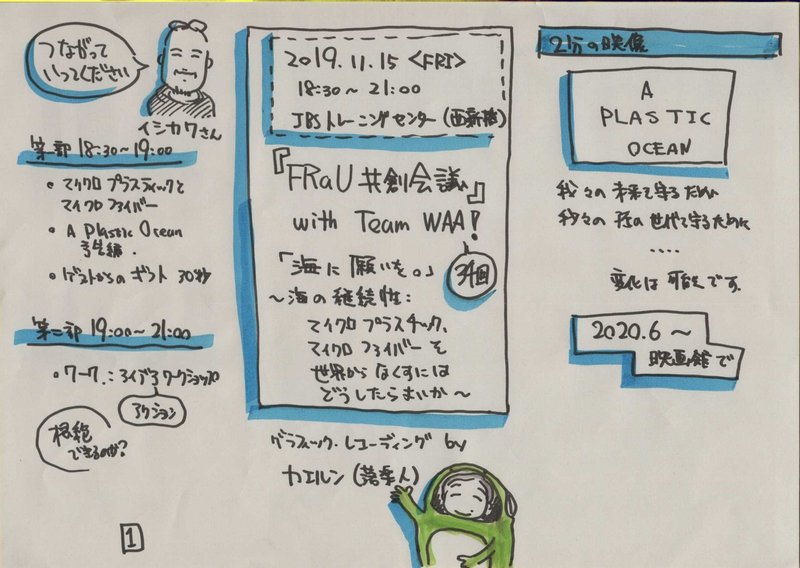 つながって
いってください
イシカワさん
第一部 18:30~19:00
・マイクロ プラスティックと
マイクロファイバー
・A Plastic Ocean
予告編.
・ゲストからの ギフト 30秒
第二部 19:00~21:00
・ワーク.:ライブラワークショップ
アクション
根絶
できるのか?
1
2019.11.15 <FRI>
18:30~21:00
JBSトレーニングセンター(西新橋)
『FRaU 共創会議』
with Team WAA!
34回
「海に 願いを。」
~海の継続性:
マイクロ プラスチック、
マイクロ ファイバー を
世界から なくすには
どうしたらよいか~
グラフィック・レコーディング by
カエルン
2分の映像
A
PLASTIC
OCEAN
我々の 未来を守る ために
我々の 次の 世代を守るために
....
変化は 可能です.
2020.6~
映画館で